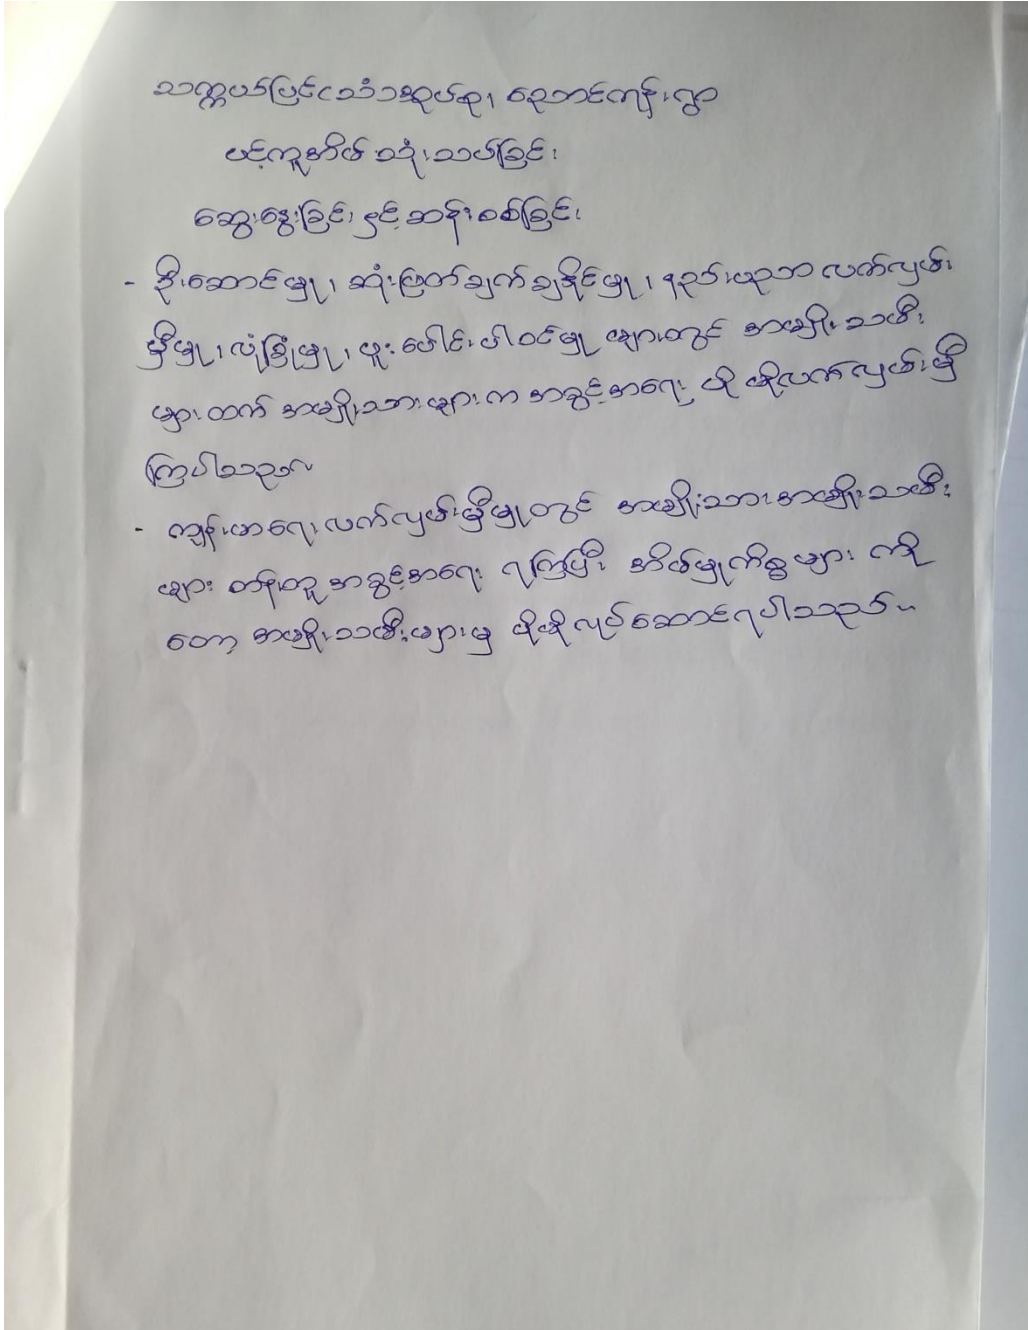 သက္ကယ်ပြင်ငသံသအုပ်စု၊ ညောင်ကုန်းရွာ
ပင့်ကူအိမ် သုံးသပ်ခြင်း
ဆွေးနွေးခြင်း၊ နှင့် ဆန်းစစ်ခြင်း
- ဦးဆောင်မှု၊ ဆုံးဖြတ်ချက်ချနိုင်မှု၊ နည်းပညာ လက်လှမ်း
မှီမှု၊ လုံခြုံမှု၊ ပူးပေါင်းပါဝင်မှု များတွင် အမျိုးသမီး
များထက် အမျိုးသားများက အခွင့်အရေး ပို မိုလက်လှမ်းမှီ
ကြပါသည်။
- ကျန်းမာရေးလက်လှမ်းမှီမှုတွင် အမျိုးသားအမျိုးသမီး
များ တန်းတူ အခွင့်အရေး ရကြပြီး အိမ်မှုကိစ္စများ ကို
တော့ အမျိုးသမီးများမှ ပိုမိုလုပ်ဆောင်ရပါသည်။